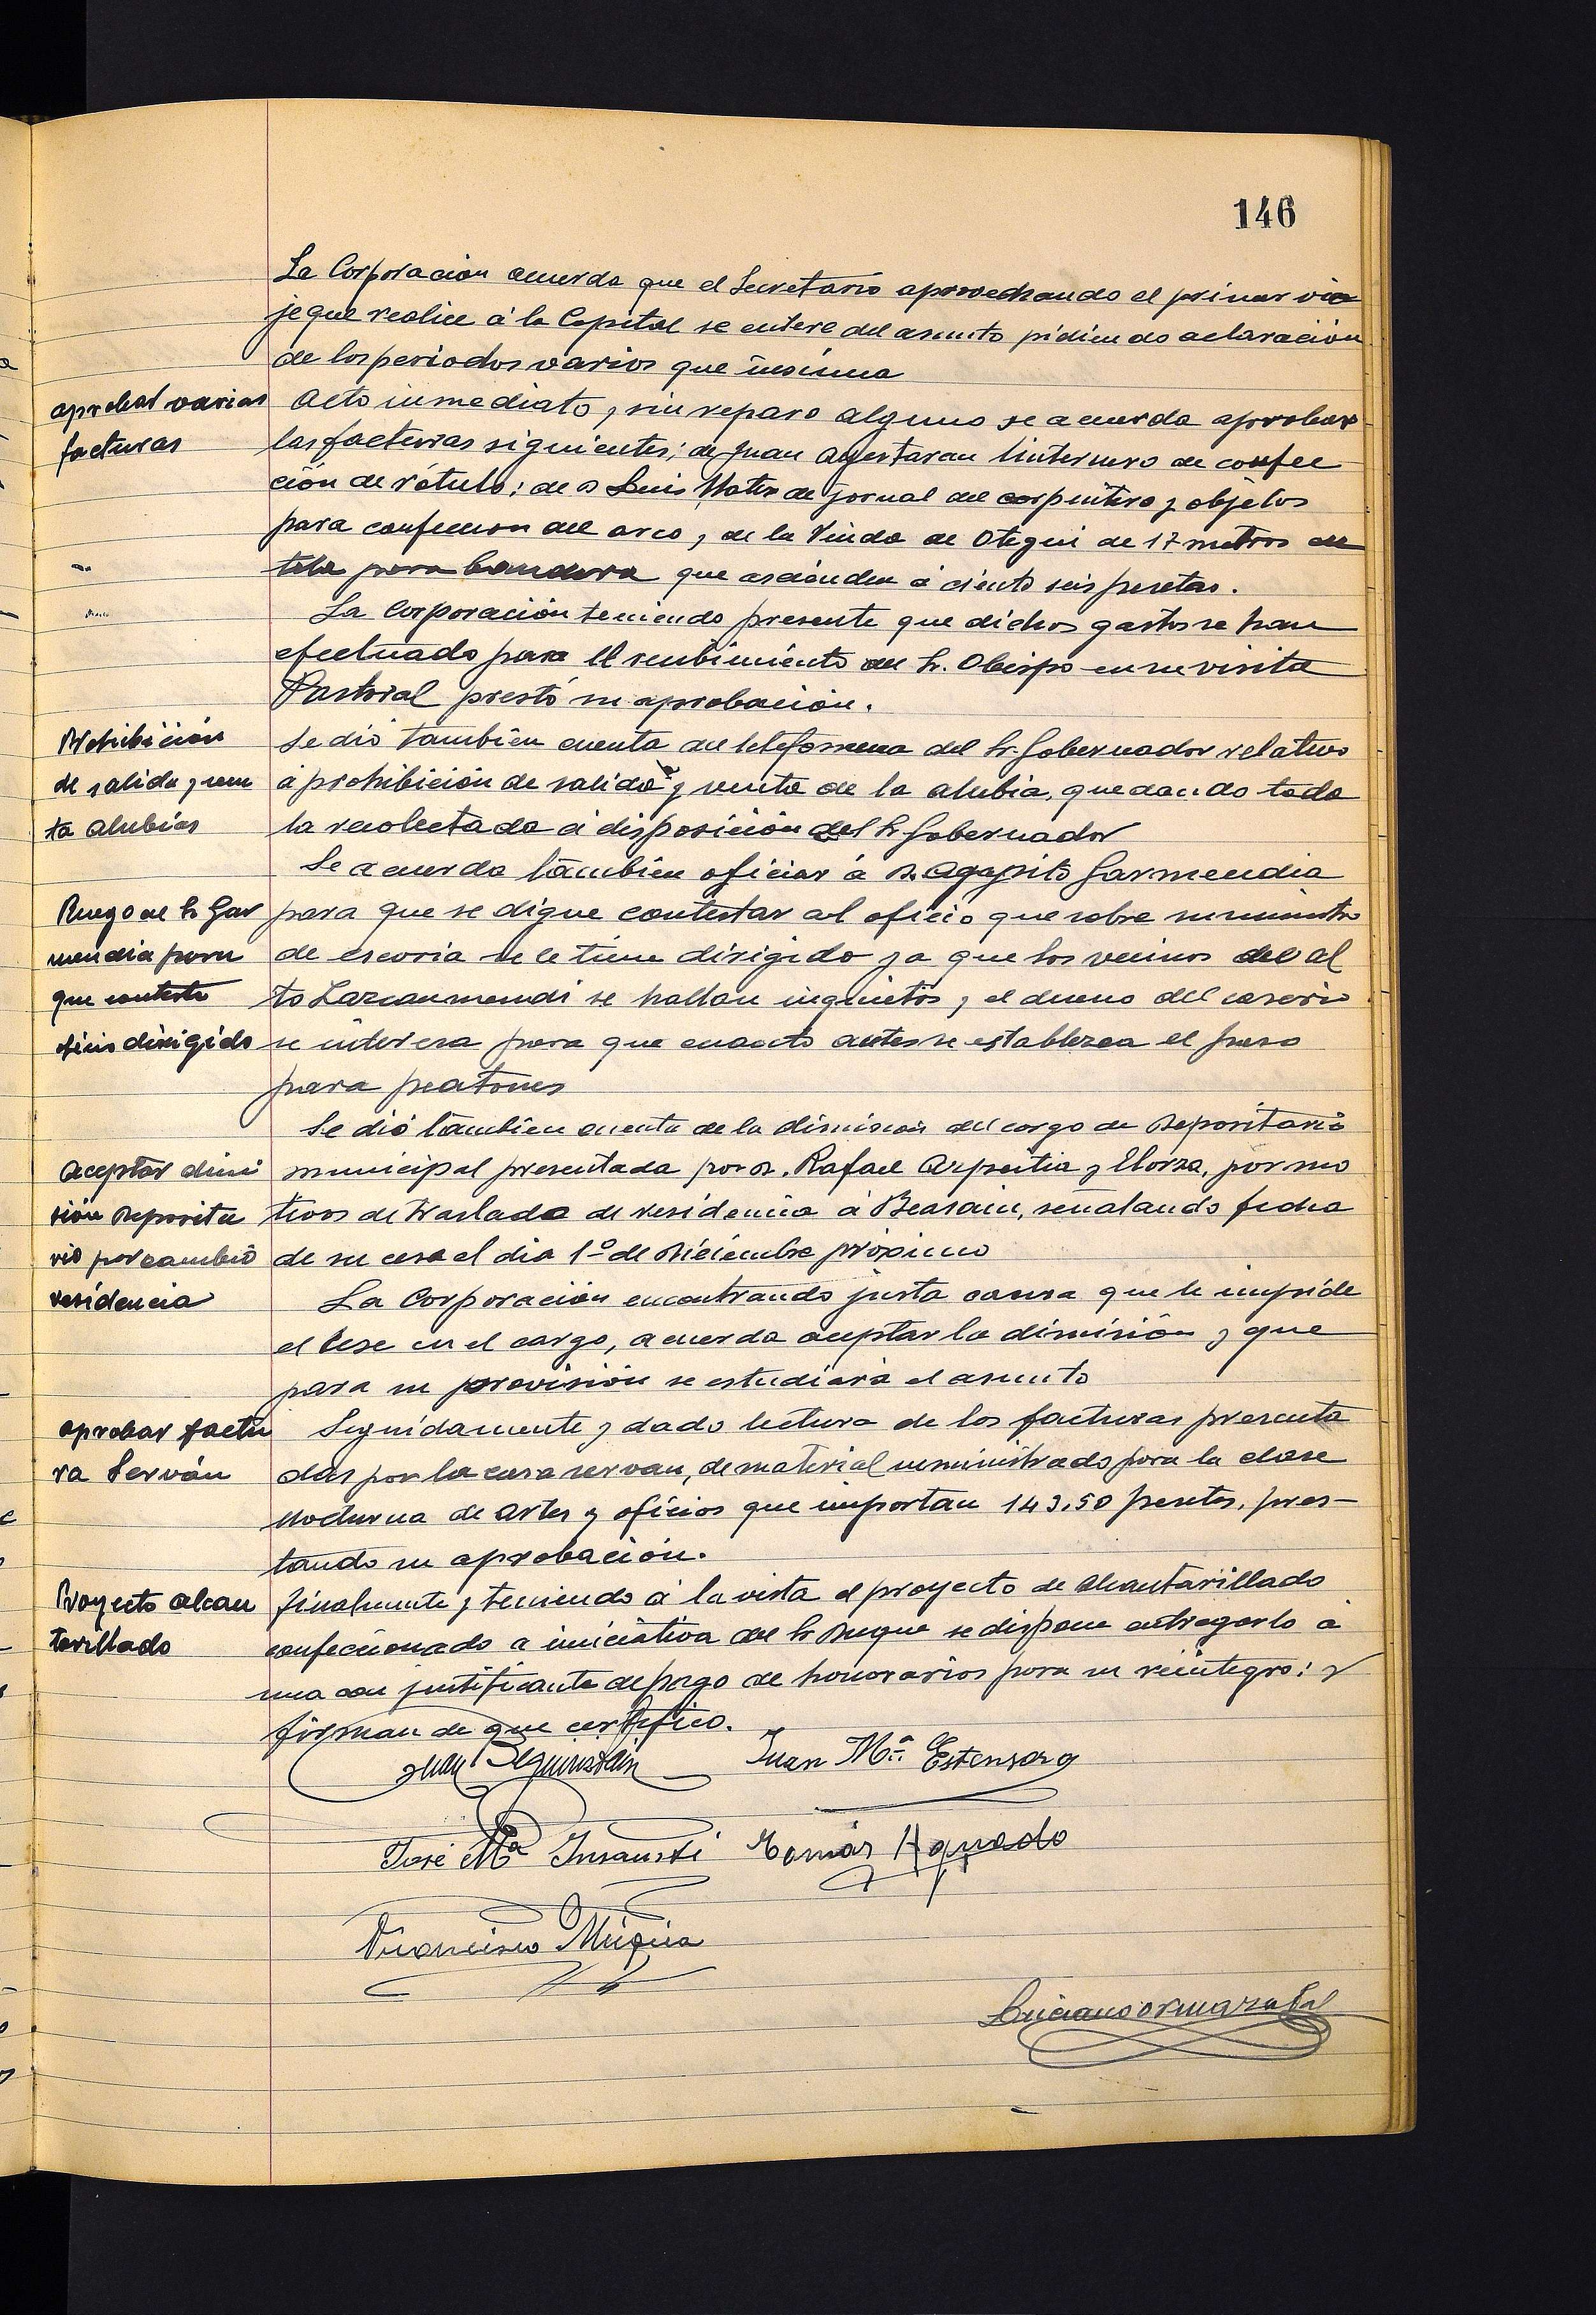 146
La Corporacion acuerda que el Secretario aprovechando el primer via
je que realice á la Capital se entere del asunto pidiendo aclaración
de los periodos varios que insinua
aprobar varias
facturas
Acto inmediato y sin reparo alguno se acuerda aprobar
las facturas siguientes; de Juan linternero de confec
ción de rótulo: de D Luis de jornal del carpintero y objetos
para confeccion del arco, de la Viuda de Otegui de 17 metros de
tela para bandera que ascienden á ciento seis pesetas.
La Corporación teniendo presente que dichos gastos se han
efectuado para el recibimiento del Sr. Obispo en su visita
Pastoral prestó su aprobación.
Prohibición
de salida y ven
ta alubias
Se dió tambien cuenta del telefonema del Sr. Gobernador relativo
á prohibición de salida y venta de la alubia, quedando toda
la recolectada á disposición del Sr Gobernador
Se acuerda tambien oficiar á D. Agapito Garmendia
Ruego al Sr Gar
mendia para
que conteste
oficio dirigido
para que se digne contestar al oficio que sobre suministro
de escoria se le tiene dirigido ya que los vecinos del al
to Lazcanomendi se hallan inquietos y el dueno del caserio
se interesa para que cuanto antes se establezca el paso
para peatones
Se dió tambien cuenta de la dimision del cargo de Depositario
Aceptar dimi
sión Deposita
rio por cambio
residencia
municipal presentada por D. Rafael Azpeitia y Elorza, por mo
tivos de traslado de residencia á Beasain, señalando fecha
de su cese el dia 1º de Diciembre próximo
La Corporación encontrando justa causa que le impide
el cese en el cargo, acuerda aceptar la dimisión y que
para su provisión se estudiará el asunto
aprobar factu
ra Serván
Seguidamente y dado lectura de las facturas presenta
das por la casa servan, de material suministrado para la clase
nocturna de Artes y oficios que importan 143,50 pesetas, pres-
tando su aprobación.
Proyecto alcan
tarillado
finalmente y teniendo á la vista el proyecto de Alcantarillado
confeccionado a iniciativa del Sr Duque se dispone entregarlo á
una con justificante de pago de honorarios para su reintegro: y
firman de que certifico.
Juan Mª. Estensoro
José Mª Insausti Tomás Aguado
Francisco Múgica
Luciano Ormazabal